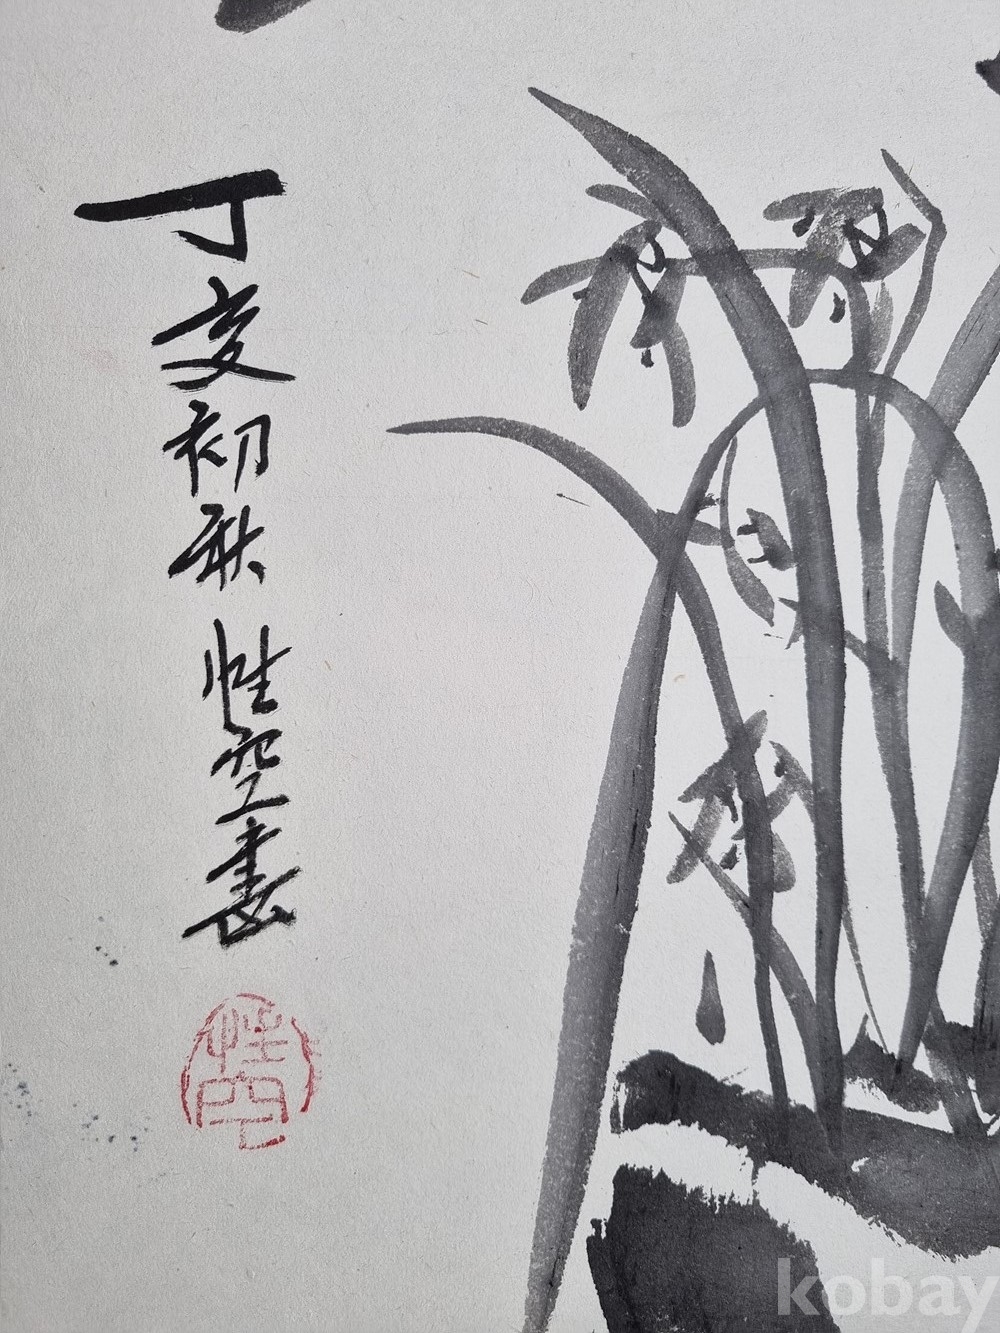 丁亥初秋 性空書
性空
kobay